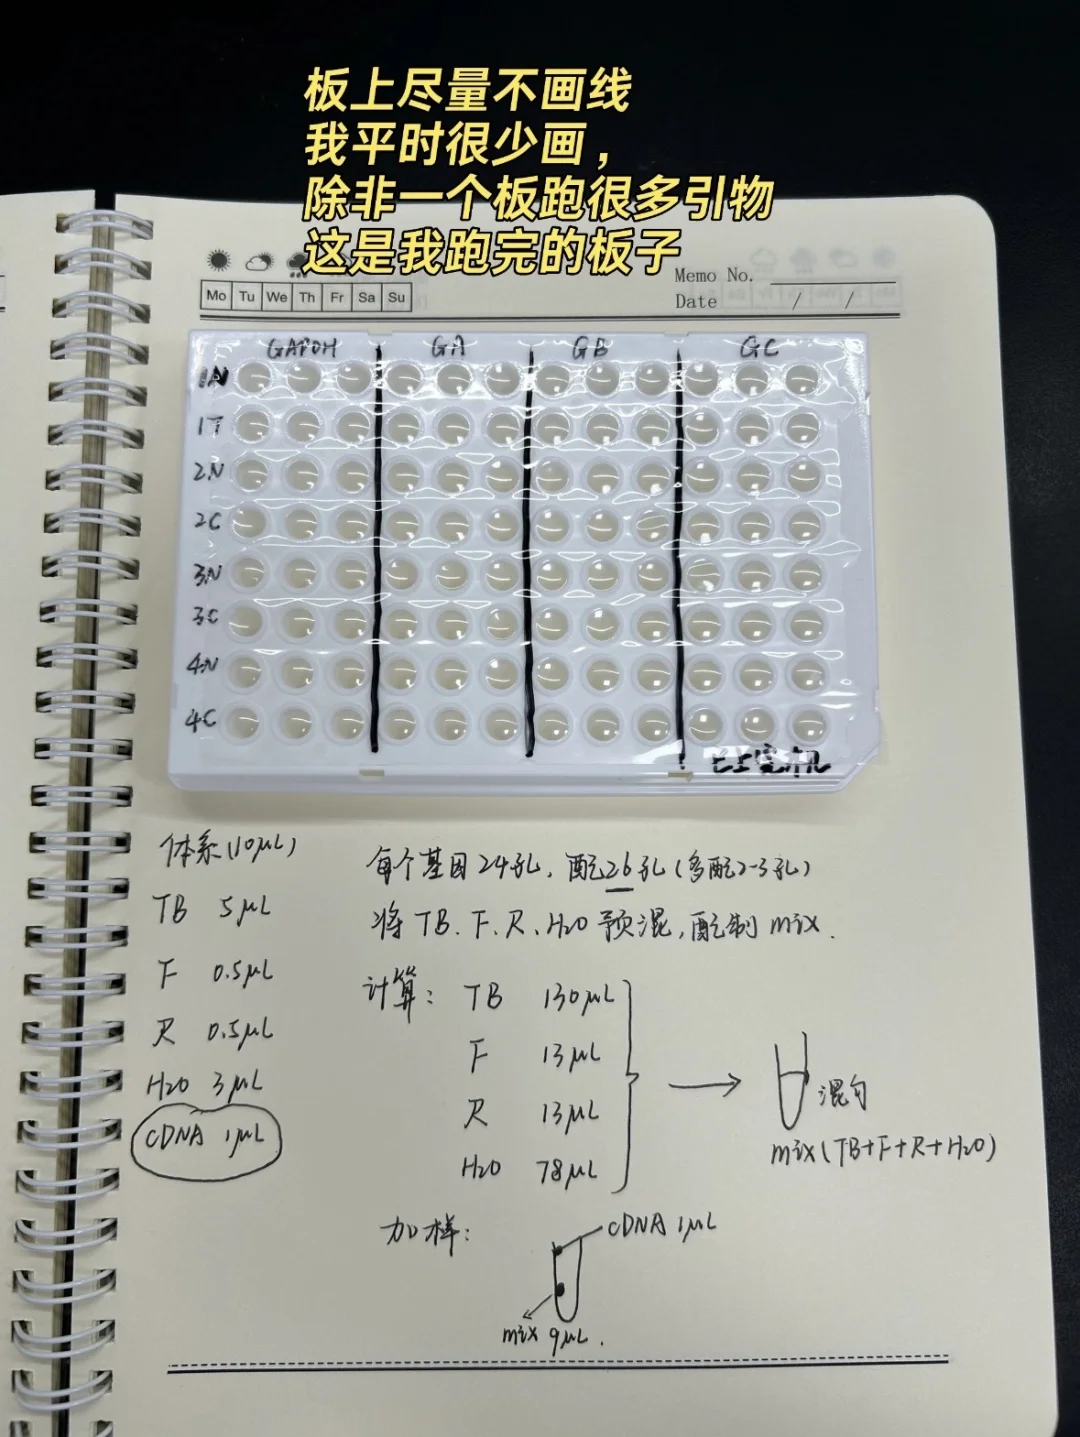 板上尽量不画线
我平时很少画，
除非一个板跑很多引物
这是我跑完的板子
Memo No.
Mo Tu We Th Fr Sa Su
Date / /
GAPDH GA GB GC
1N
1T
2N
2C
3N
3C
4N
4C
体系(10μL)
TB 5μL
F 0.5μL
R 0.5μL
H2O 3μL
cDNA 1μL
每个基因24孔，配26孔(多配2-3孔)
将TB、F、R、H2O预混，配制mix.
计算：TB 130μL
F 13μL
R 13μL
H2O 78μL
混匀
mix(TB+F+R+H2O)
加样：
cDNA 1μL
mix 9μL.